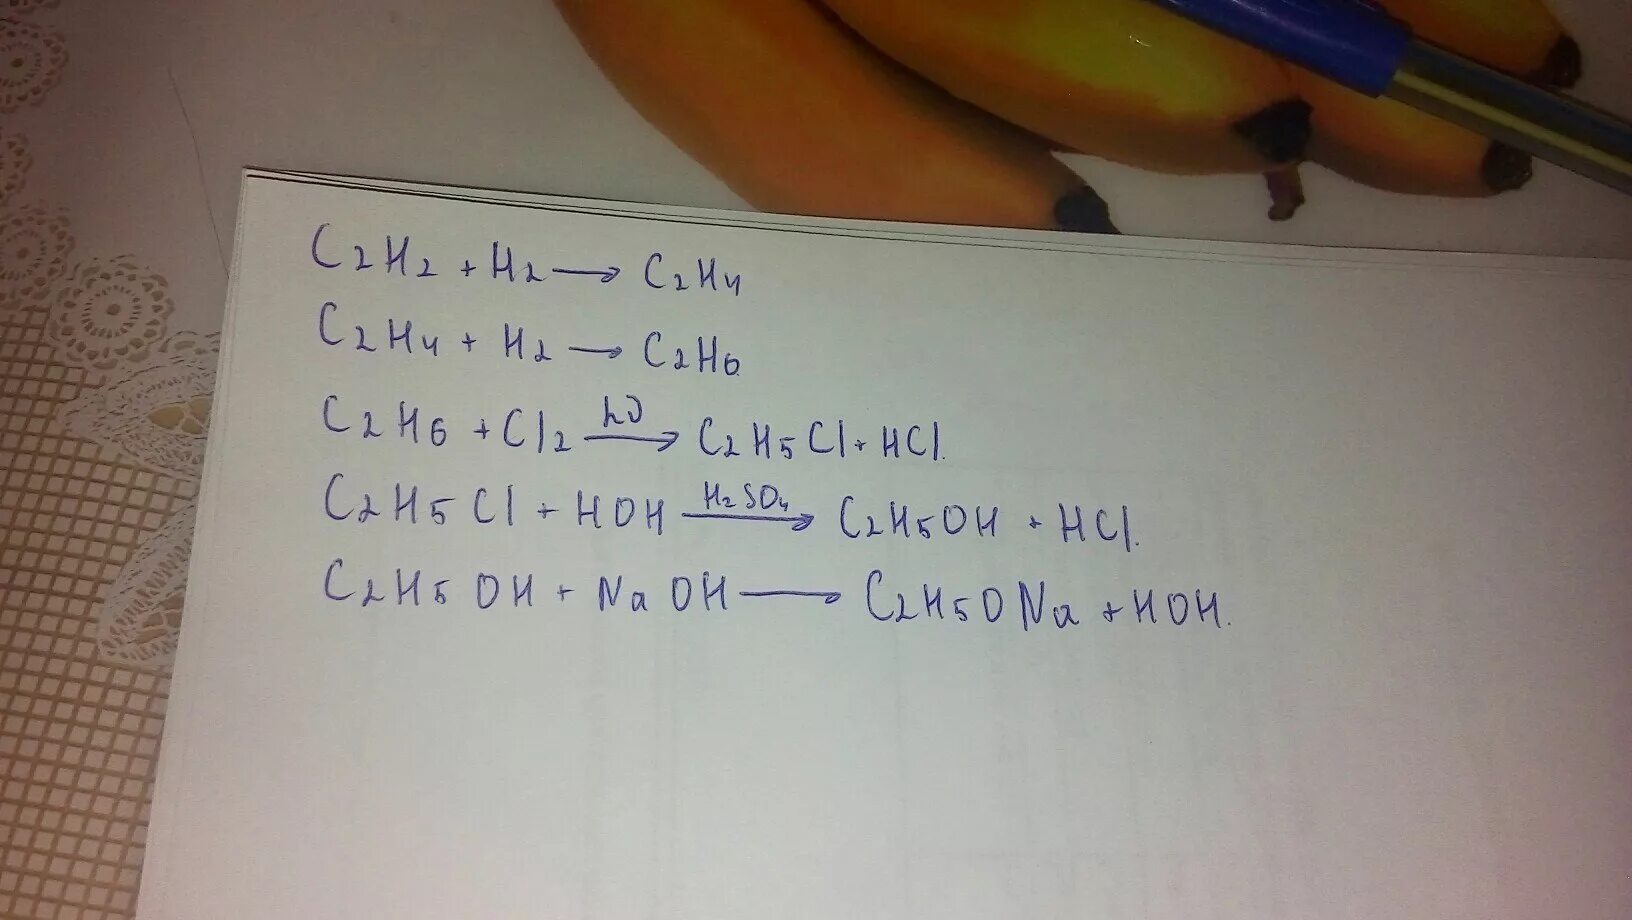 C2H2 + H2 → C2H4
C2H4 + H2 → C2H6
C2H6 + Cl2 hν→ C2H5Cl + HCl.
C2H5Cl + HOH H2SO4→ C2H5OH + HCl.
C2H5OH + NaOH → C2H5ONa + HOH.